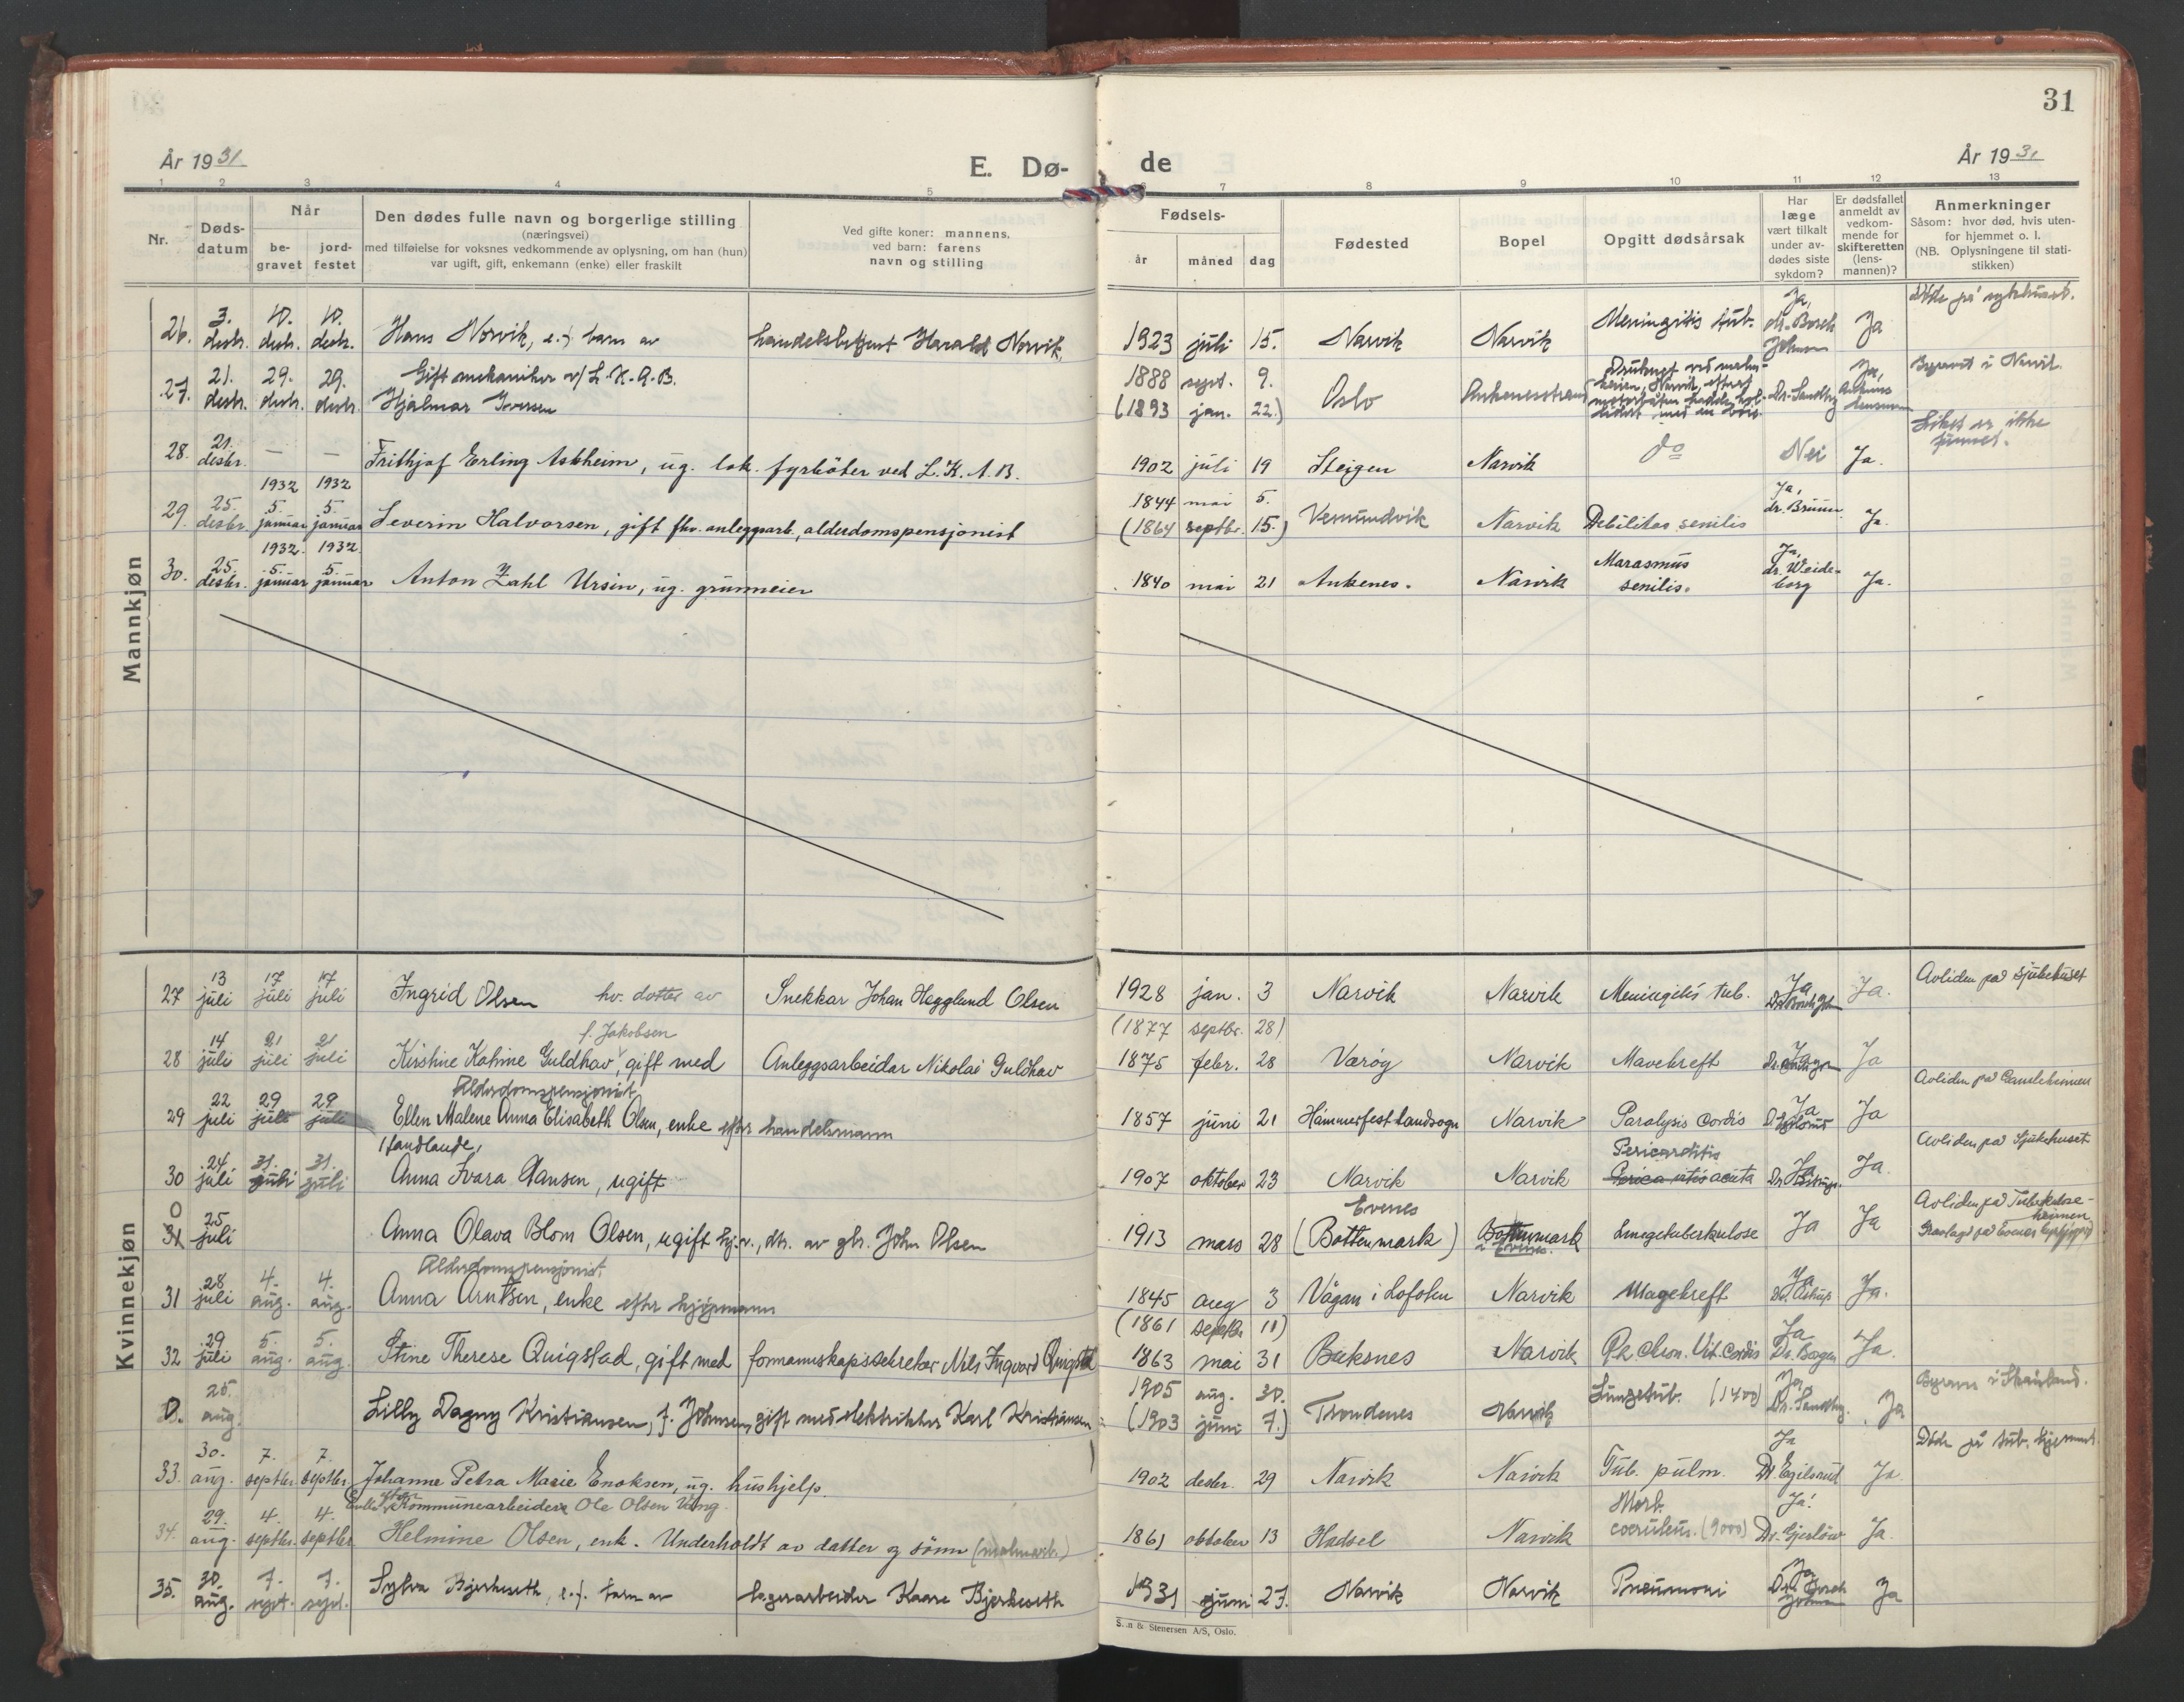 31
År 1931
E. Dø-
de
År 1931
1 2 3 4 5 7 8 9 10 11 12 13
Nr.
Døds-
datum
Når
be-
gravet
jord-
festet
Den dødes fulle navn og borgerlige stilling
(næringsvei)
med tilføielse for voksnes vedkommende av oplysning, om han (hun)
var ugift, gift, enkemann (enke) eller fraskilt
Ved gifte koner: mannens,
ved barn: farens
navn og stilling
Fødsels-
år
måned
dag
Fødested
Bopel
Opgitt dødsårsak
Har
læge
vært tilkalt
under av-
dødes siste
sykdom?
Er dødsfallet
anmeldt av
vedkom-
mende for
skifteretten
(lens-
mannen)?
Anmerkninger
Såsom: hvor død, hvis uten-
for hjemmet o. l.
(NB. Oplysningene til stati-
stikken)
Mannkjøn
26. 3. desbr. 10. desbr. 10. desbr. Hans Norvik, e.f. barn av handelsbetjent Harald Norvik 1923 juli 15. Narvik Narvik Meningitis tub. Ja, dr. Bosch Johnsen Ja Døde på sykehuset.
27. 21. desbr. 29. desbr. 29. desbr. Gift mekaniker v/ L.K.A.B.
Hjalmar Iversen 1888 sept. 9. (1893 jan. 22.) Oslo Ankenesstrand Dr. Sandberg Ja, Begravet i Narvik.
28. 21. desbr. — — Frithjof Erling Askheim, ug. lok. fyrbøter ved L.K.A.B. 1902 juli 19 Steigen Narvik do Nei Ja. Liket er ikke funnet.
29. 25. desbr. 1932 5. januar 1932 5. januar Severin Halvorsen, gift fhv. anleggsarb., alderdomspensjonist 1844 mai 5. (1864 septbr. 15.) Vemundvik Narvik Debilitas senilis Ja, dr. Bruun. Ja.
30. 25. desbr. 1932. 5. januar 1932. 5. januar Anton Zahl Ursin, ug. grunneier 1840 mai 21 Ankenes. Narvik Marasmus senilis. Ja, dr. Weideborg Ja.
Kvinnekjøn
27 13 juli 17 juli 17 juli Ingrid Olsen hv. datter av Snekkar Johan Hagglund Olsen 1928 jan. 3 Narvik Narvik Meningitis tub. Ja Ja. Avliden på sjukehuset
28 14 juli 21 juli 21 juli f. Jakobsen
Kirstine Katrine Guldhav, gift med Anleggsarbeidar Nikolai Guldhav (1877 septbr. 28) 1875 febr. 28 Værøy Narvik Mavekreft Ja Ja
29 22 juli 29 juli 29 juli Alderdomspensjonist
Ellen Malene Anna Elisabeth Olsen, enke efter handelsmann 1857 juni 21 Hammerfest landsogn Narvik Paralysis cordis Ja Ja Avliden på Gamleheimen
30 24 juli 31. juli 31. juli
Anna Ivara Hansen, ugift 1907 oktober 23 Narvik Narvik Pericarditis acuta Ja Ja. Avliden på Sjukehuset
0 31 25 juli Anna Olava Blom Olsen, ugift hj.v., dtr. av gbr. John Olsen 1913 mars 28 Evenes (Bottenmark) Bottenmark i Evenes. Lungetuberkulose Ja Ja Avliden på Tuberkulose-
heimen
Gravlagd på Evenes
31 28 juli 4. aug. 4. aug. Alderdomspensjonist.
Anna Arntsen, enke efter kjøpmann 1845 aug 3 Vågan i Lofoten Narvik Magekreft Ja Dr. Astrup Ja.
32 29 juli 5. aug. 5. aug. Stine Therese Quigstad, gift med formannskapssekretær Nils Ingvard Quigstad (1861 septbr. 11) 1863 mai 31 Buksnes Narvik Vit. cordis Ja Dr. Borgen Ja.
0. 25. aug. Lilly Dagny Kristiansen, f. Johnsen, gift med elektriker Karl Kristiansen 1905 aug. 30. (1903 juni 7.) Trondenes Narvik Lungetub. (1400) Ja Dr. Sandberg. Ja Begraves i Skånland.
33. 30. aug. 7. septbr. 7. septbr. Johanne Petra Marie Enoksen, ug. hushjelp. 1902 desbr. 29 Narvik Narvik Tub. pulm. Ja Dr. Egilsrud Ja. Døde på tub. hjemmet.
34. 29. aug. 4. septbr. 4. septbr. Enke efter kommunearbeider Ole Olsen Vang.
Helmine Olsen, enk. Underholdt av datter og sønn (malmarb.) 1861 oktober 13 Hadsel Narvik Morb. coeruleus. (9000) Ja! Dr. Gjerløw Ja.
35. 30. aug. 7. sept. 7. sept. Sylva Bjerkeseth, e.f. barn av lagerarbeider Kaare Bjerkeseth 1931 juni 27. Narvik Narvik Pneumoni Ja Dr. Bosch Johnsen Ja
S..n & Stenersen A/S, Oslo.